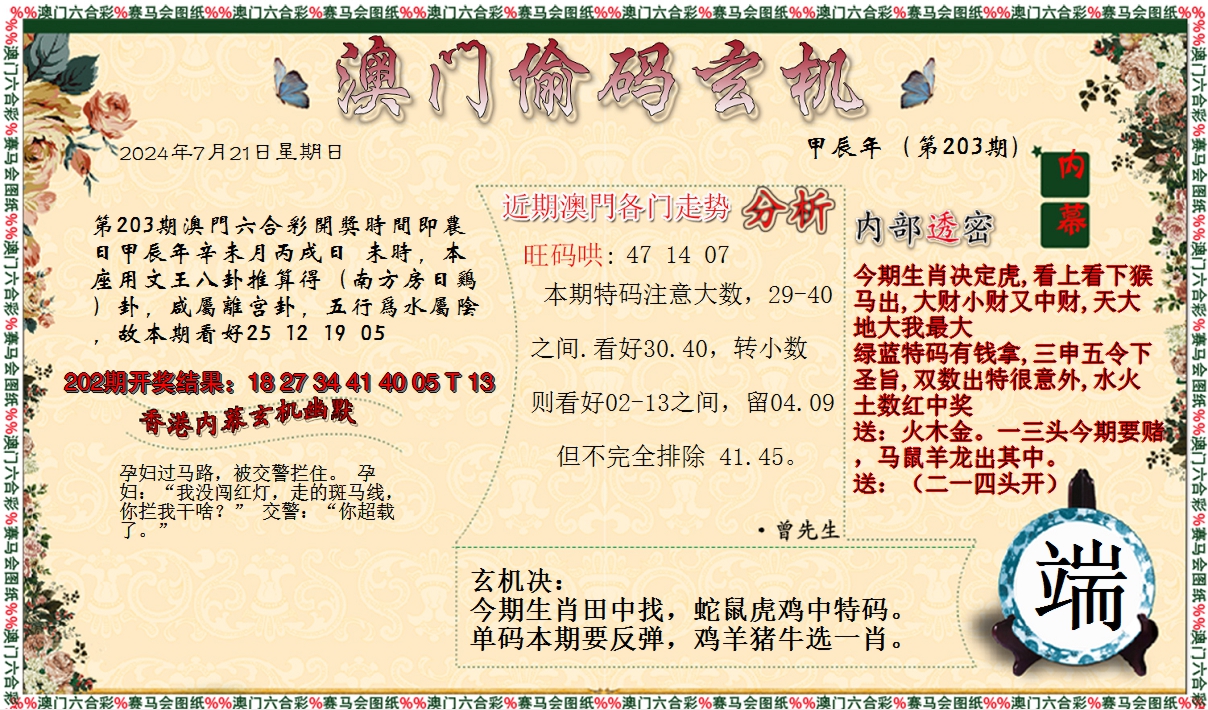 %%澳门六合彩%赛马会图纸%%澳门六合彩%赛马会图纸%%澳门六合彩%赛马会图纸%%澳门六合彩%赛马会图纸%%澳门六合彩%赛马会图纸%%澳门六合彩%赛马会图纸%%
澳门偷码玄机
2024年7月21日星期日
甲辰年（第203期）
内幕
第203期澳門六合彩開獎時間即農
日甲辰年辛未月丙戌日 未時，本
座用文王八卦推算得（南方房日鷄
）卦，咸屬離宫卦，五行爲水屬陰
，故本期看好25 12 19 05
202期开奖结果：18 27 34 41 40 05 T 13
香港内幕玄机幽默
孕妇过马路，被交警拦住。 孕
妇：“我没闯红灯，走的斑马线，
你拦我干啥？” 交警：“你超载
了。”
近期澳門各门走势 分析
旺码哄: 47 14 07
本期特码注意大数，29-40
之间.看好30.40，转小数
则看好02-13之间，留04.09
但不完全排除 41.45。
·曾先生
内部透密
今期生肖决定虎,看上看下猴
马出,大财小财又中财,天大
地大我最大
绿蓝特码有钱拿,三申五令下
圣旨,双数出特很意外,水火
土数红中奖
送：火木金。一三头今期要赌
，马鼠羊龙出其中。
送：（二一四头开）
玄机决：
今期生肖田中找，蛇鼠虎鸡中特码。
单码本期要反弹，鸡羊猪牛选一肖。
端
%%澳门六合彩%赛马会图纸%%澳门六合彩%赛马会图纸%%澳门六合彩%赛马会图纸%%澳门六合彩%赛马会图纸%%澳门六合彩%赛马会图纸%%澳门六合彩%赛马会图纸%%